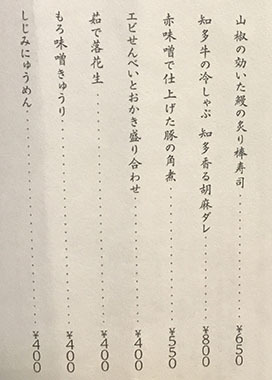 山椒の効いた鰻の炙り棒寿司‥‥‥‥‥‥‥‥¥650
知多牛の冷しゃぶ 知多香る胡麻ダレ‥‥‥‥‥¥800
赤味噌で仕上げた豚の角煮‥‥‥‥‥‥‥‥¥550
エビせんべいとおかき盛り合わせ‥‥‥‥‥‥¥400
茹で落花生‥‥‥‥‥‥‥‥‥‥‥‥¥400
もろ味噌きゅうり‥‥‥‥‥‥‥‥‥‥¥400
しじみにゅうめん‥‥‥‥‥‥‥‥‥‥¥400